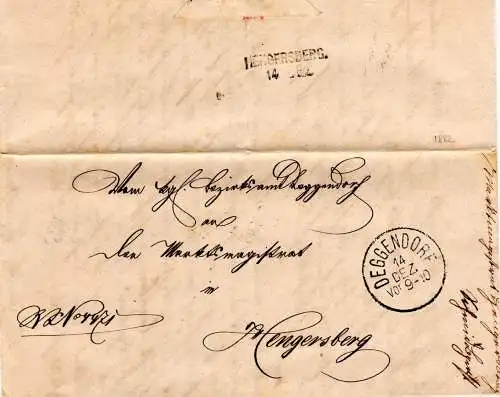 HENGERSBERG.
14 DEZ.
1882
Vom kgl. Bezirksamt Deggendorf
an
den Marktsmagistrat
in
Hengersberg
DEGGENDORF
14
DEZ.
Vor 9-10